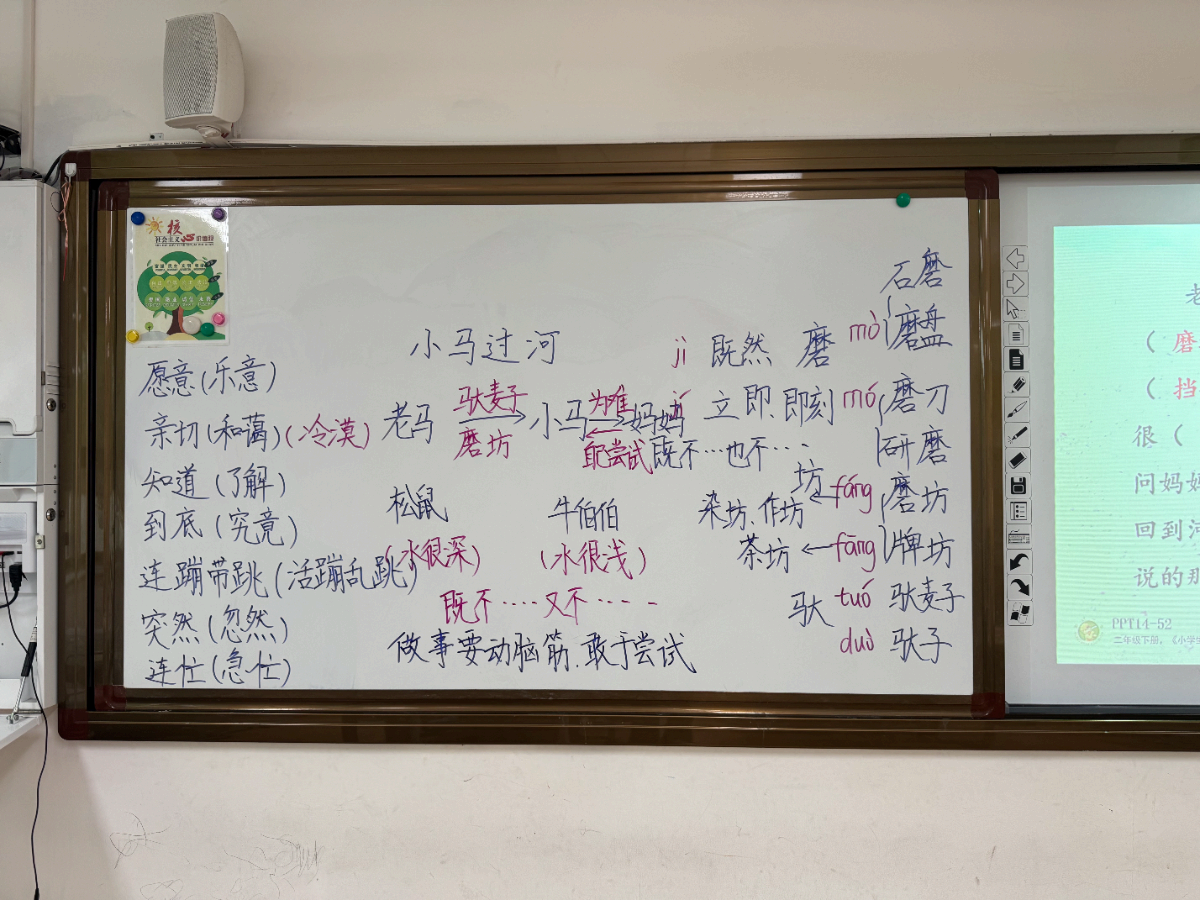 核
社会主义 心 价值观
小马过河
愿意(乐意)
亲切(和蔼)(冷漠)
知道(了解)
到底(究竟)
连蹦带跳(活蹦乱跳)
突然(忽然)
连忙(急忙)
老马 驮麦子 磨坊 小马 为难 耐尝试 妈妈
松鼠 牛伯伯
(水很深) (水很浅)
既不……又不……
做事要动脑筋、敢于尝试
jì 既然
jí 立即、即刻
既不…也不…
磨 mò 石磨
磨盘
mó 磨刀
研磨
坊 fáng 磨坊
染坊、作坊
fāng 牌坊
茶坊
驮 tuó 驮麦子
duò 驮子
老
( 磨
( 挡
很 (
问妈妈
回到河
说的那
PPT14-52
二年级下册,《小学